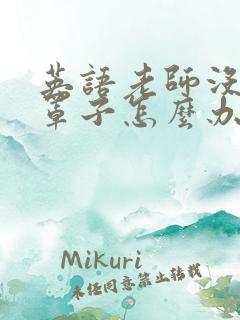 英語老師沒
罩子怎麼办
Mikuri
未经同意禁止转载